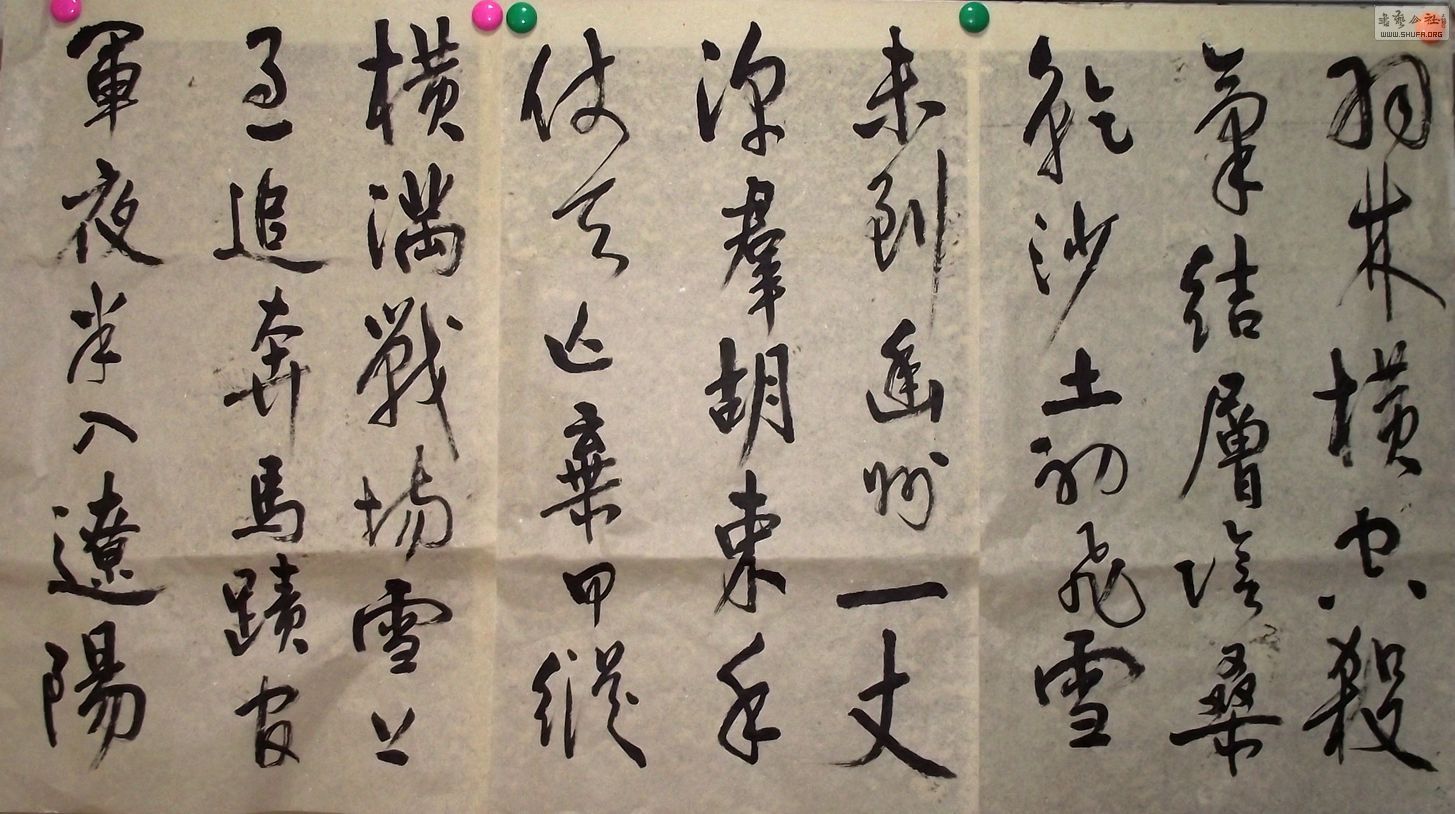 羽林橫空殺
氣結層陰桑
乾沙土初飛雪
未到幽州一丈
深羣胡束手
仗天亡棄甲縱
橫滿戰場雪上
急追奔馬蹟官
軍夜半入遼陽
書藝公社
WWW.SHUFA.ORG